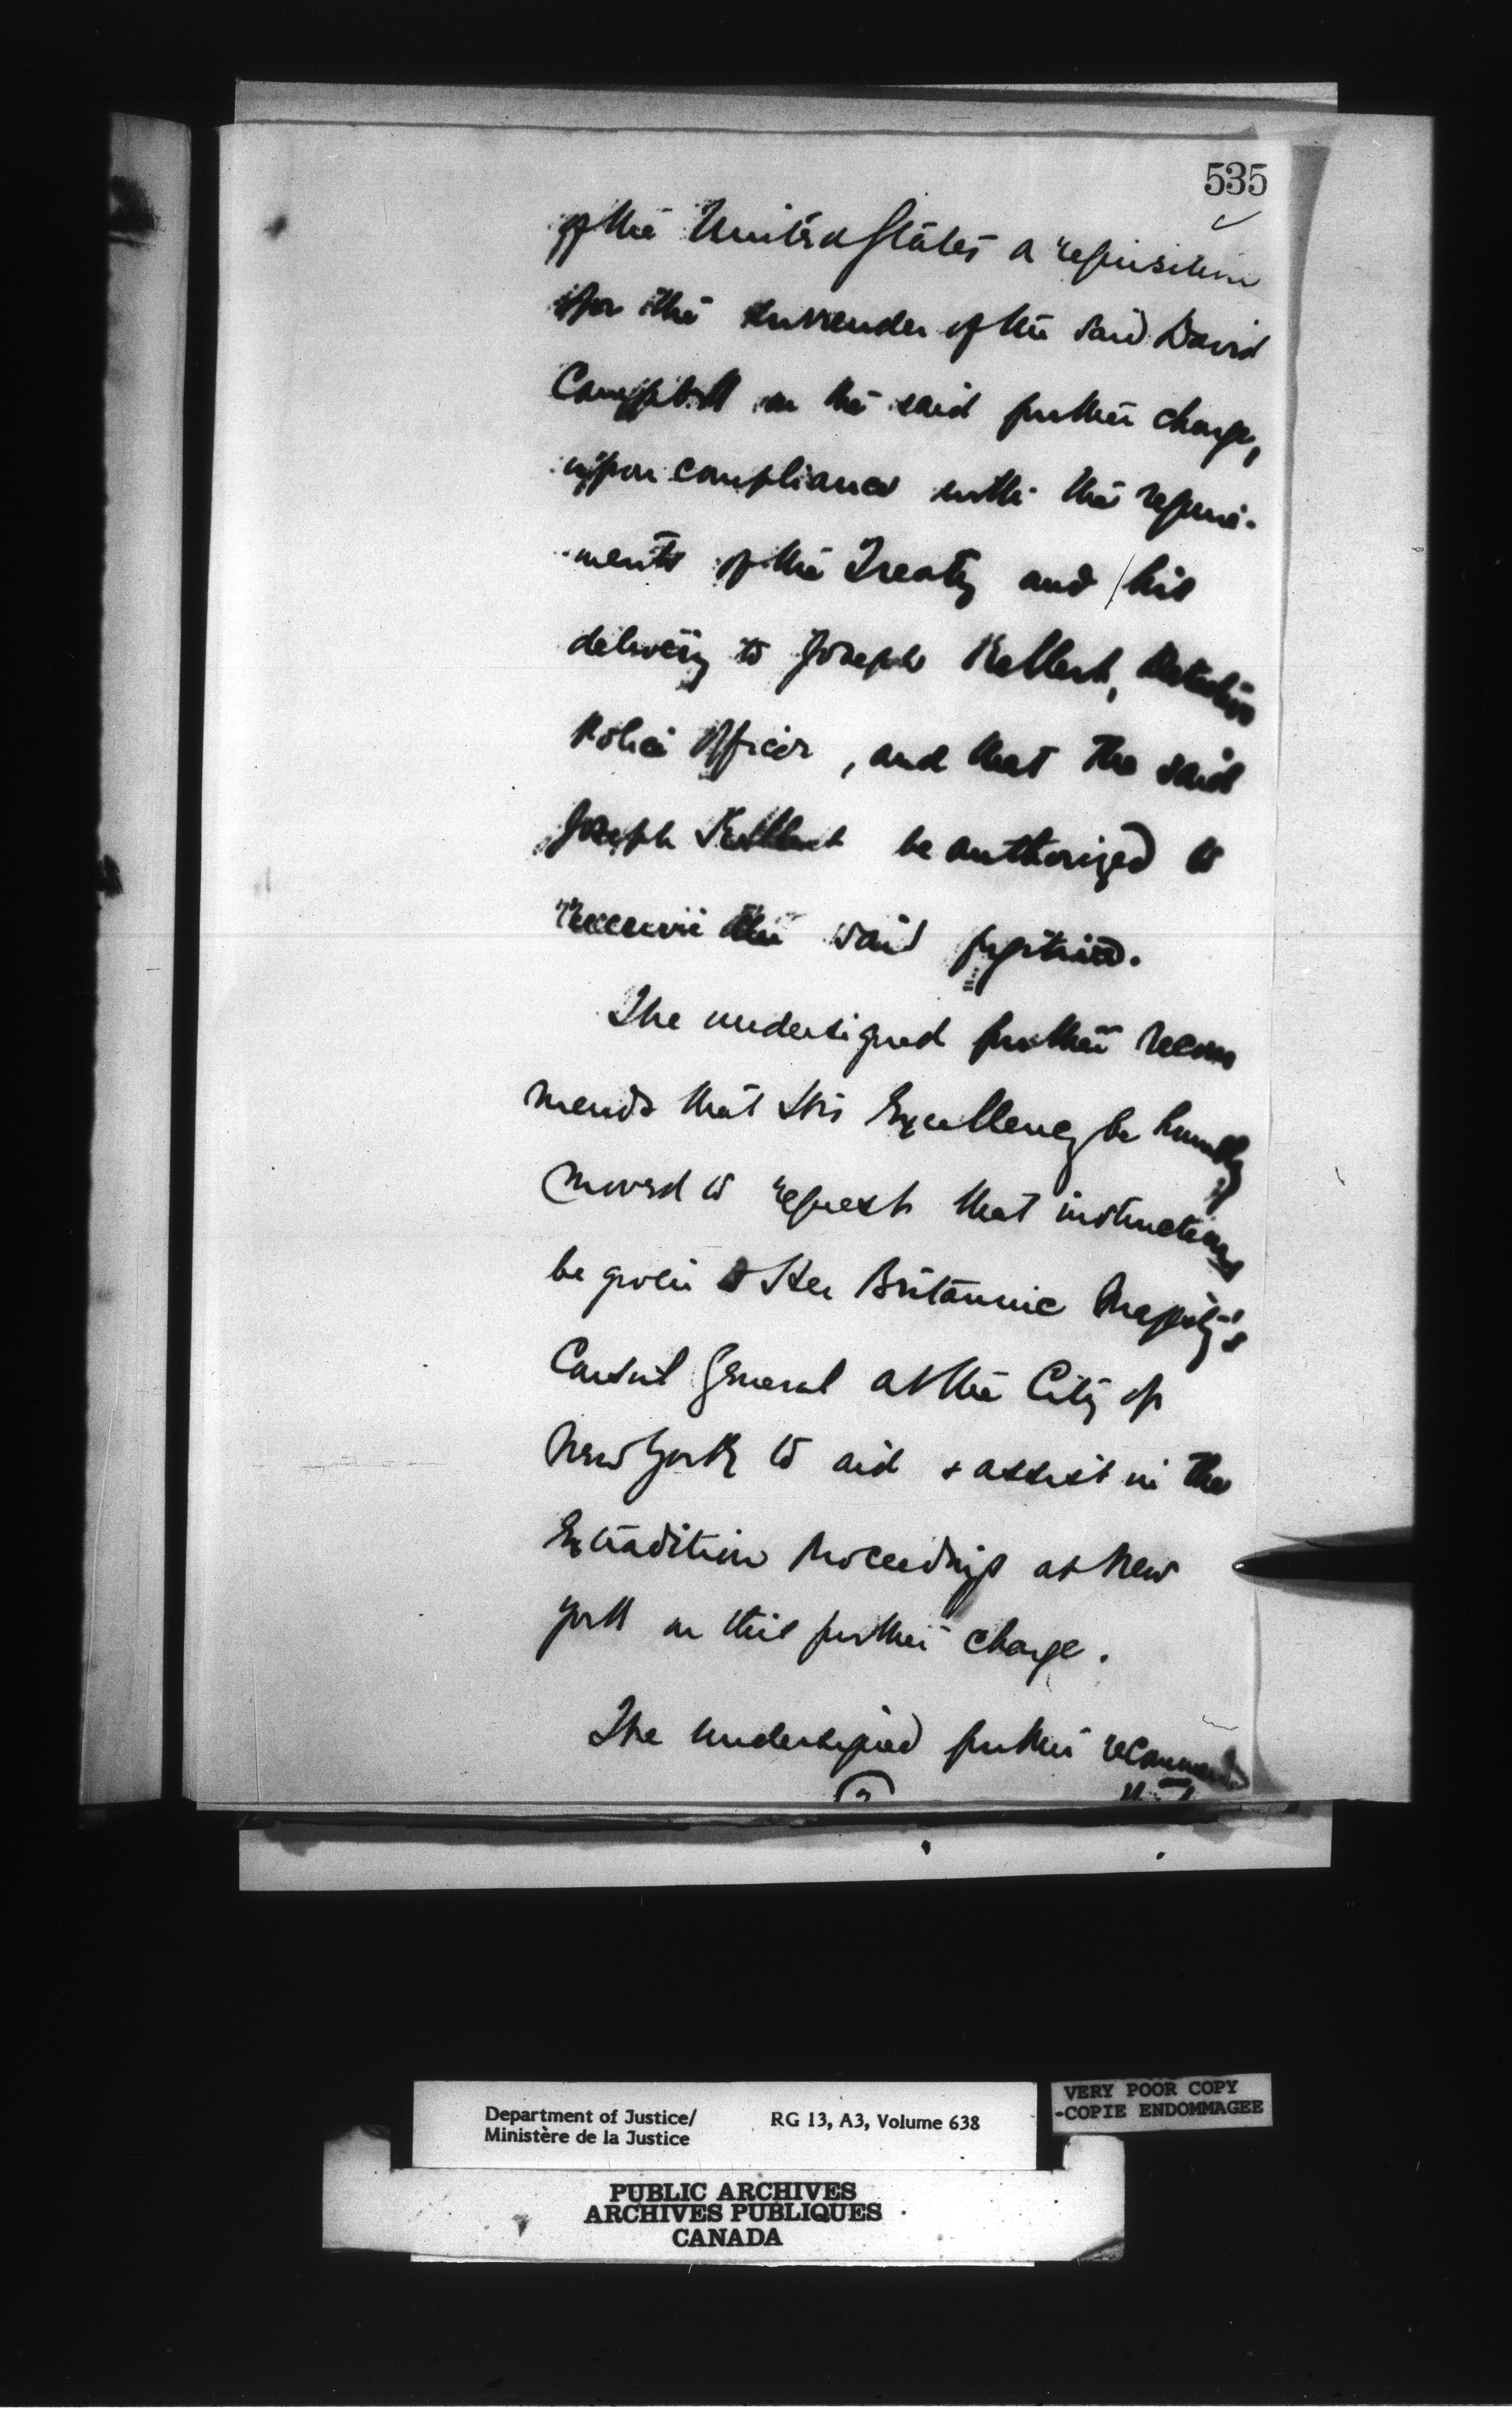 535
of the United States a requisition
for the surrender of the said David
Campbell on the said further charge,
upon compliance with the require-
ments of the Treaty and his
delivery to Joseph Kellert, Detective
Police Officer, and that the said
Joseph Kellert be authorized to
receive the said fugitive.
The undersigned further recom
mends that His Excellency be humbly
moved to request that instructions
be given to Her Britannic Majesty's
Consul General at the City of
New York to aid & assist in the
Extradition Proceedings at New
York on this further charge.
The undersigned further recommends
Department of Justice/
Ministère de la Justice
RG 13, A3, Volume 638
VERY POOR COPY
-COPIE ENDOMMAGEE
PUBLIC ARCHIVES
ARCHIVES PUBLIQUES
CANADA